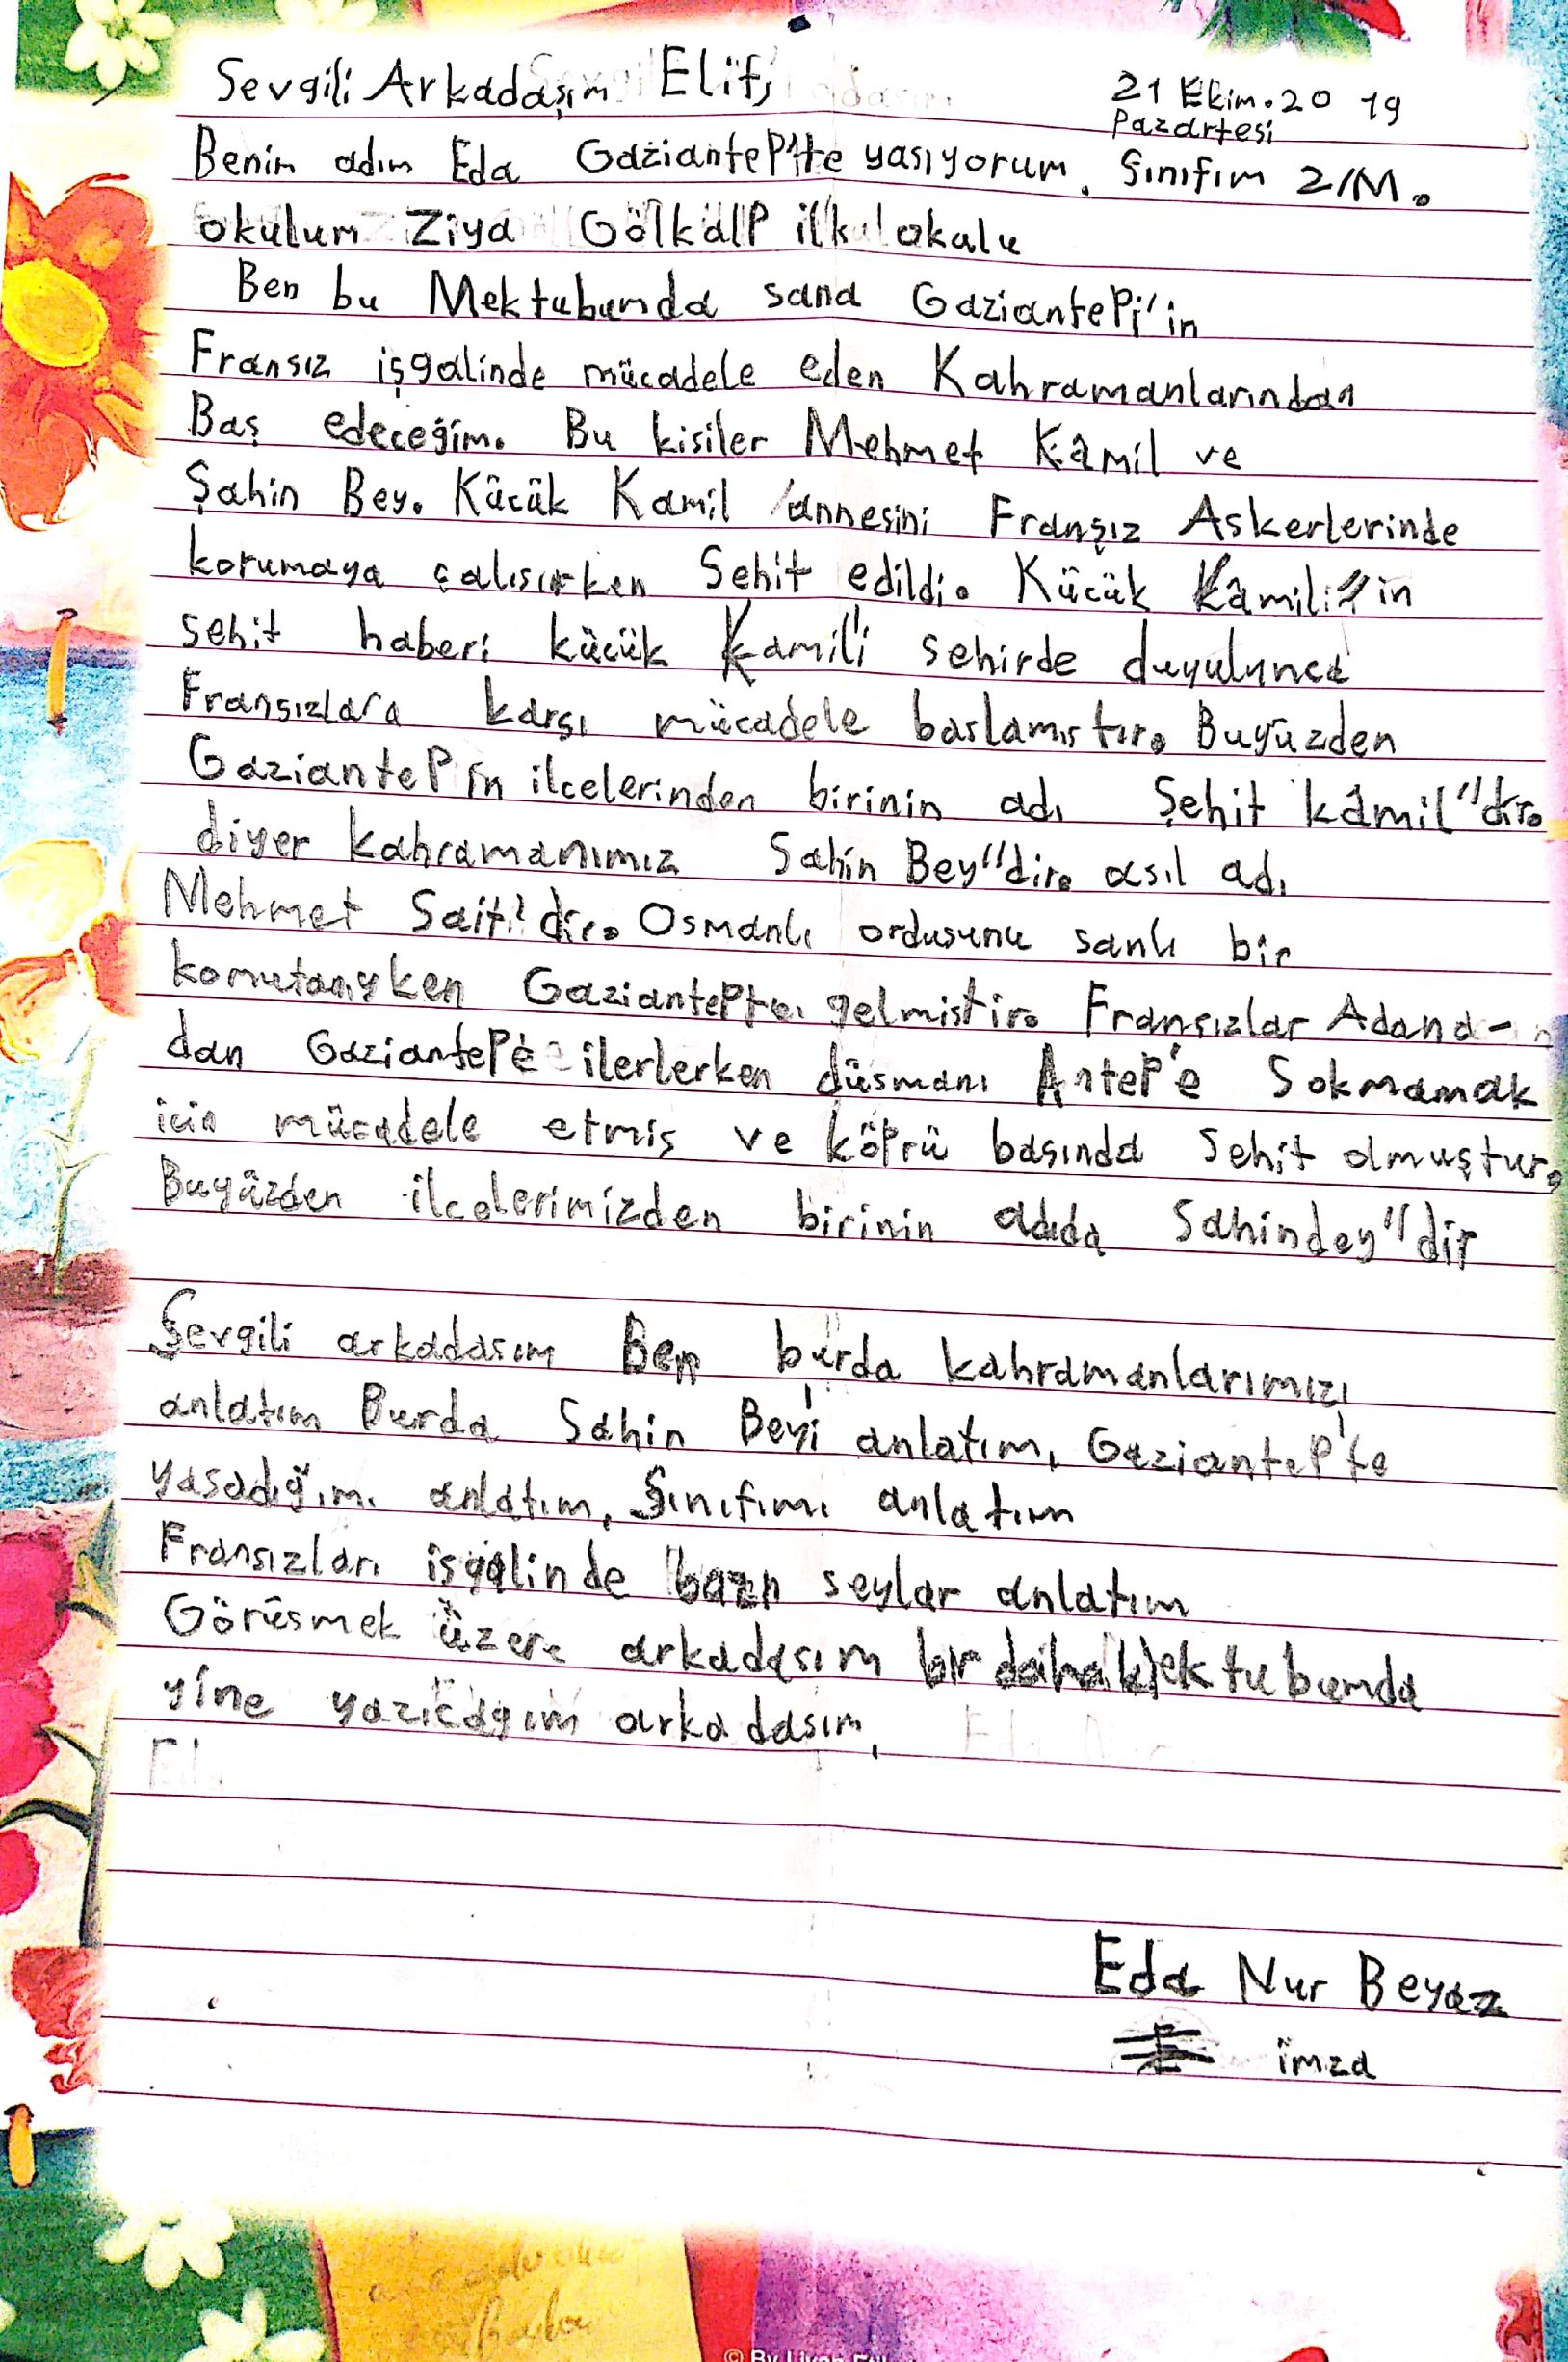 Sevgili Arkadaşım Elif,
21 Ekim.2019
Pazartesi
Benim adım Eda Gaziantep'te yasıyorum. Sınıfım 2/M.
okulum Ziya Gölkalp ilkokalu
Ben bu Mektubumda sana Gaziantepi'in
Fransız işgalinde mücadele eden Kahramanlarından
Baş edeceğim. Bu kisiler Mehmet Kâmil ve
Şahin Bey. Kücük Kamil annesini Franşız Askerlerinde
korumaya çalısırken Sehit edildi. Kücük Kâmili"in
sehit haberi kücük Kamil'i sehirde duyulunca
Fransızlara karşı mücadele baslamıstır. Buyüzden
Gaziantep'in ilcelerinden birinin adı Şehit kâmil"dir.
diyer kahramanımız Sahin Bey"dir. asıl adı
Mehmet Sait'dir. Osmanlı ordusunu sanlı bir
komutanyken Gaziantepte gelmistir. Fransızlar Adana-
dan Gaziantep'e ilerlerken düsmanı Antep'e Sokmamak
icin mücadele etmis ve köprü basında Sehit olmuştur.
Buyüzden ilcelerimizden birinin adıda Sahindey"dir
Sevgili arkadasım Ben burda kahramanlarımızı
anlatım Burda Sahin Bey'i anlatım, Gaziantep'te
yasadığımı anlatım, Sınıfımı anlatım
Fransızları işgalinde bazı seylar anlatım
Görüsmek üzere arkadasım bir daha Mektubumda
yine yazıcagım arkadasım,
Eda Nur Beyaz
imza
© By Lisan